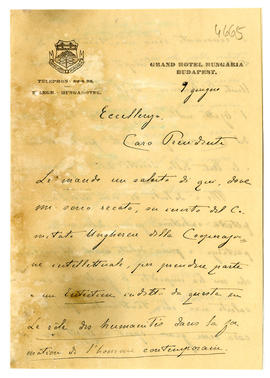 4665
GRAND HOTEL HUNGÁRIA
BUDAPEST.
TELEPHON
9 giugno
Eccellenza,
Caro Presidente
Le mando un saluto di qui, dove
mi sono recato, su invito del Co
mitato Ungherese della Cooperazio
ne intellettuale, per prendere parte
a un Entretien indetto da questa su
Le rôle des humanités dans la for
mation de l'homme contemporain.